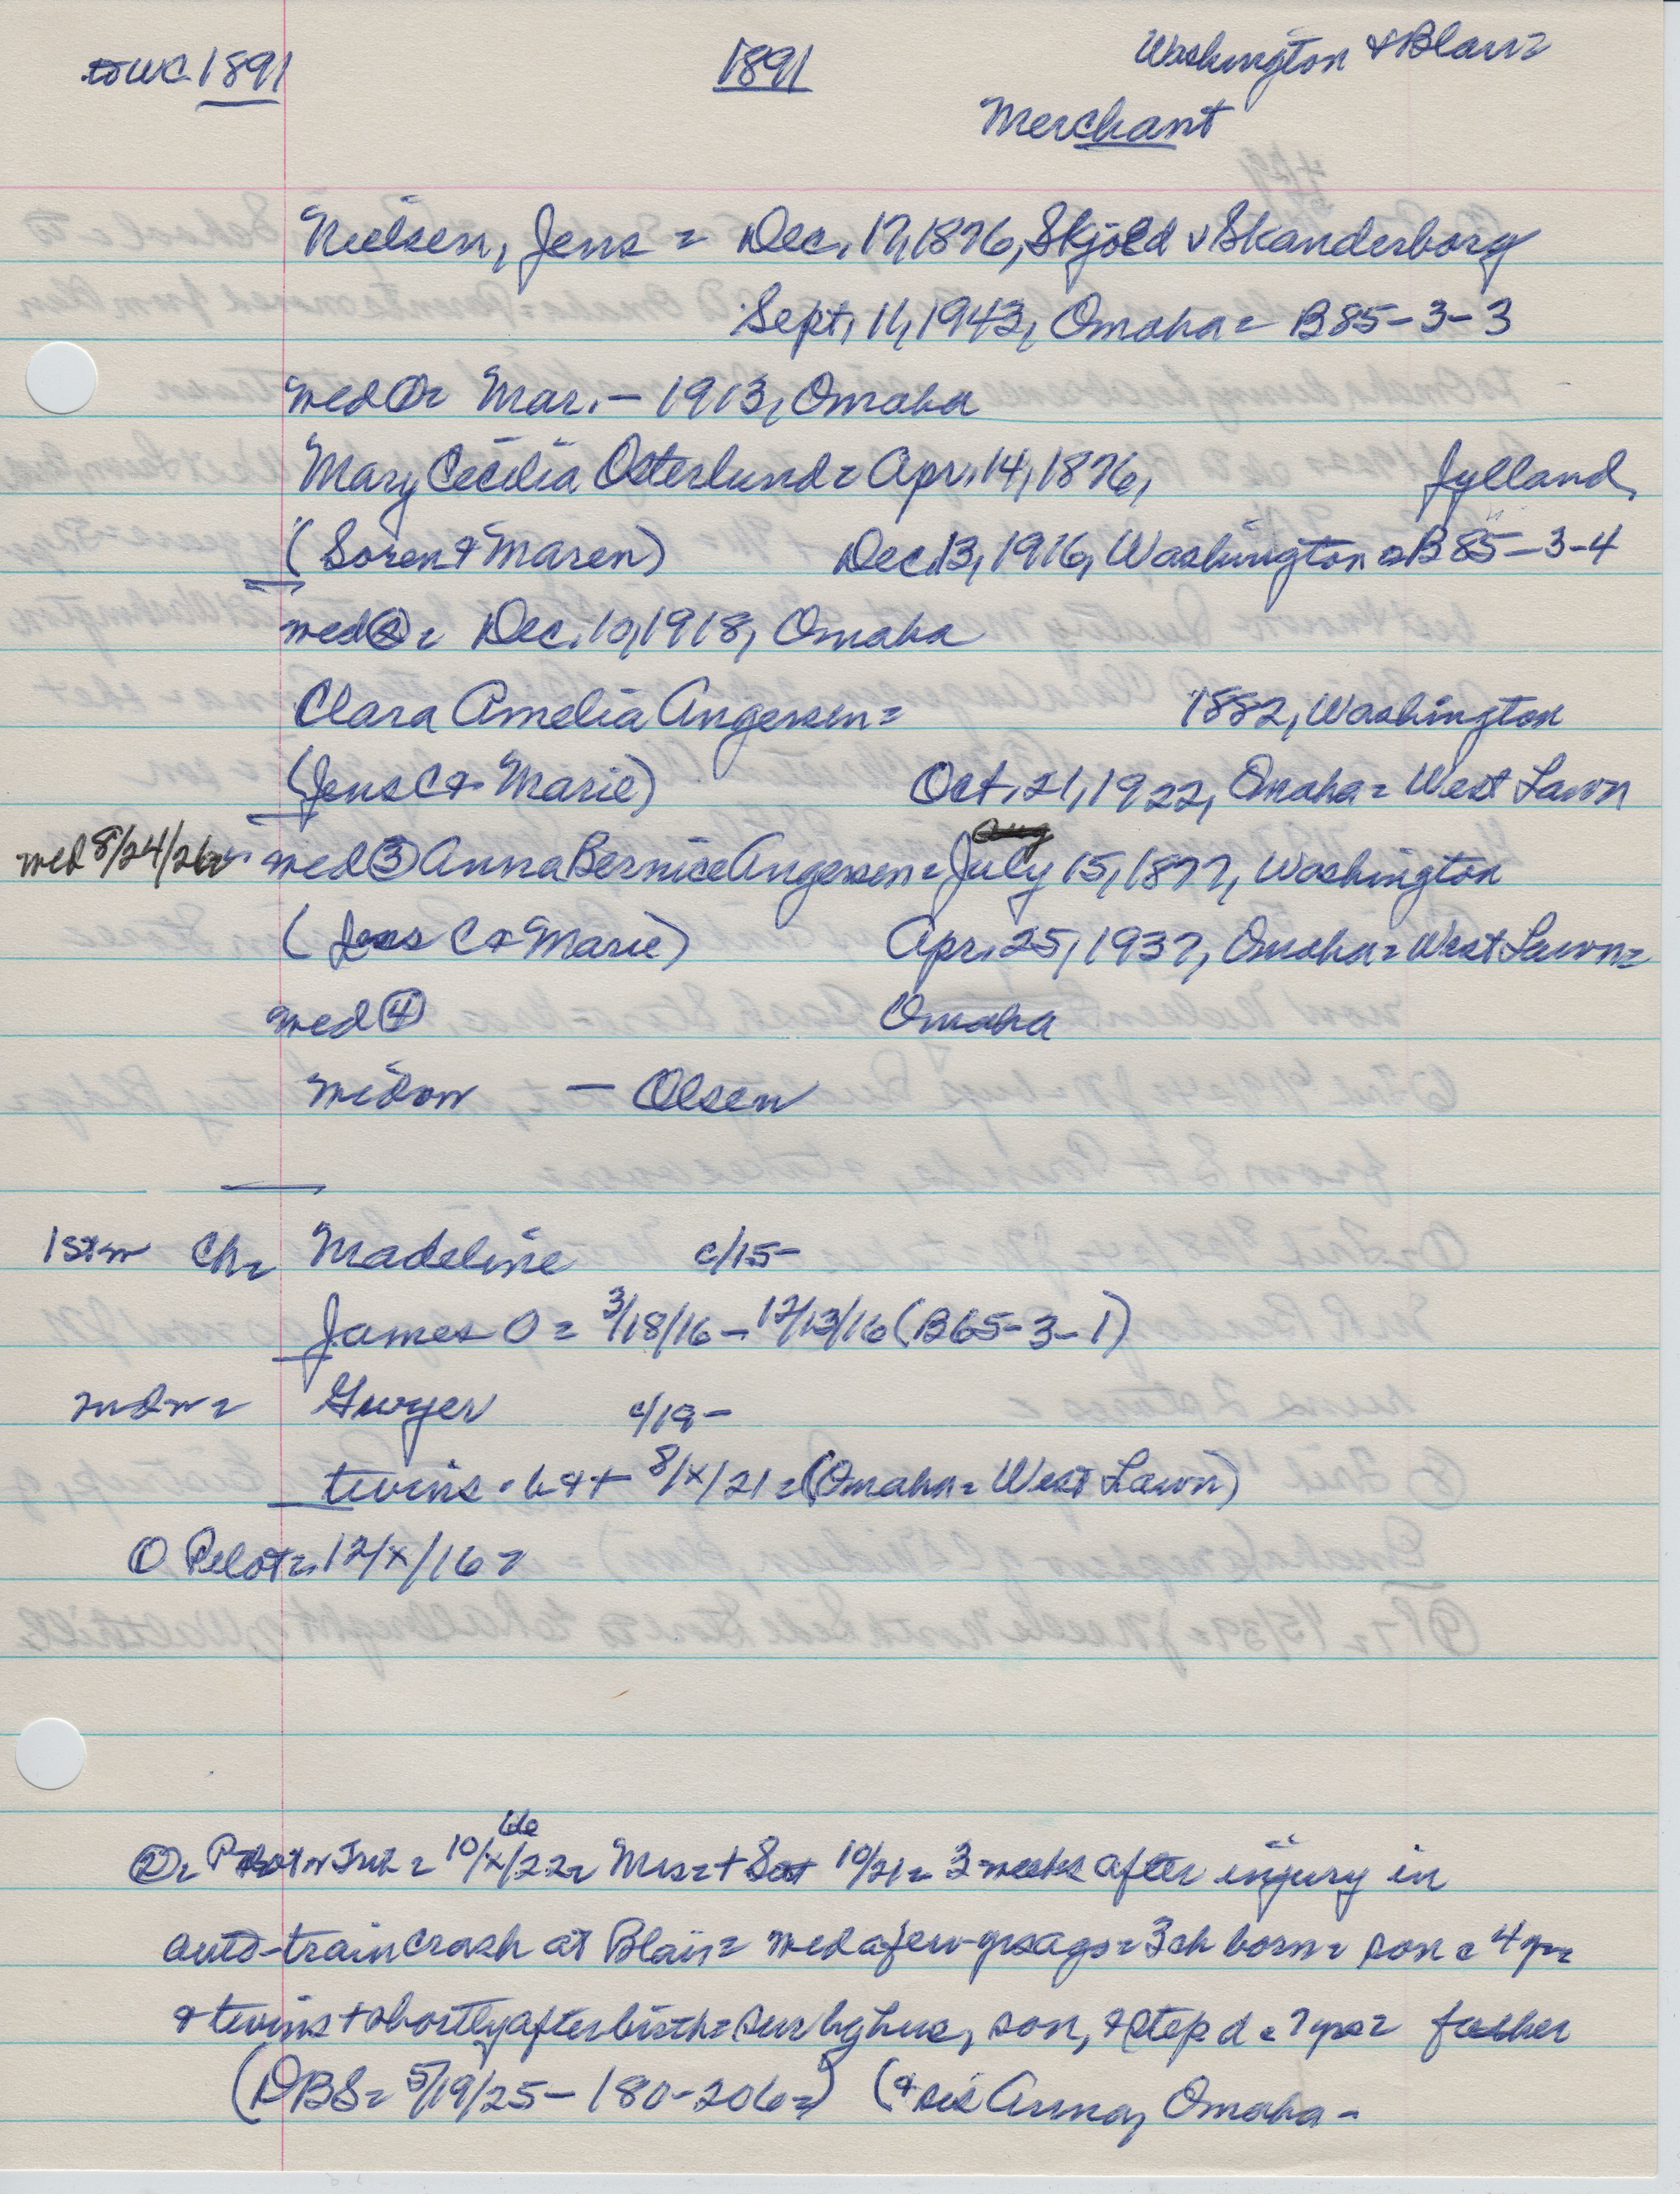 to WC 1891 1891 Washington & Blair =
Merchant
Nielsen, Jens = Dec. 17, 1876, Skjold v Skanderborg
Sept. 11, 1943, Omaha = B85-3-3
med ① = Mar. - 1913, Omaha
Mary Cecilia Osterlund = Apr. 14, 1876, Jylland,
(Soren & Maren) Dec. 13, 1916, Washington = B85-3-4
med ② = Dec. 10, 1918, Omaha
Clara Amelia Angersen = 1882, Washington
(Jens C & Marie) Oct. 21, 1922, Omaha = West Lawn
med 8/24/26 = med ③ Anna Bernice Angersen = July 15, 1877, Washington
(Jens C & Marie) Apr. 25, 1937, Omaha = West Lawn =
med ④ Omaha
widow - Olsen
1st w Ch = Madeline c/15-
James O = 3/18/16 - 12/13/16 (B65-3-1)
2nd w = Gwyer c/19-
twins - b & + 8/x/21 = (Omaha = West Lawn)
① Pilot = 12/x/16 =
② = Pilot & Trib = 10/x/22 = Mrs = + Sat 10/21 = 3 weeks after injury in
auto-train crash at Blair = med a few yrs ago = 3 ch born = son c 4 yr =
& twins + shortly after birth = sur by hus, son, & step d c 7 yrs = father
(DBS = 5/19/25 - 180-206 =) (& sis Anna, Omaha -